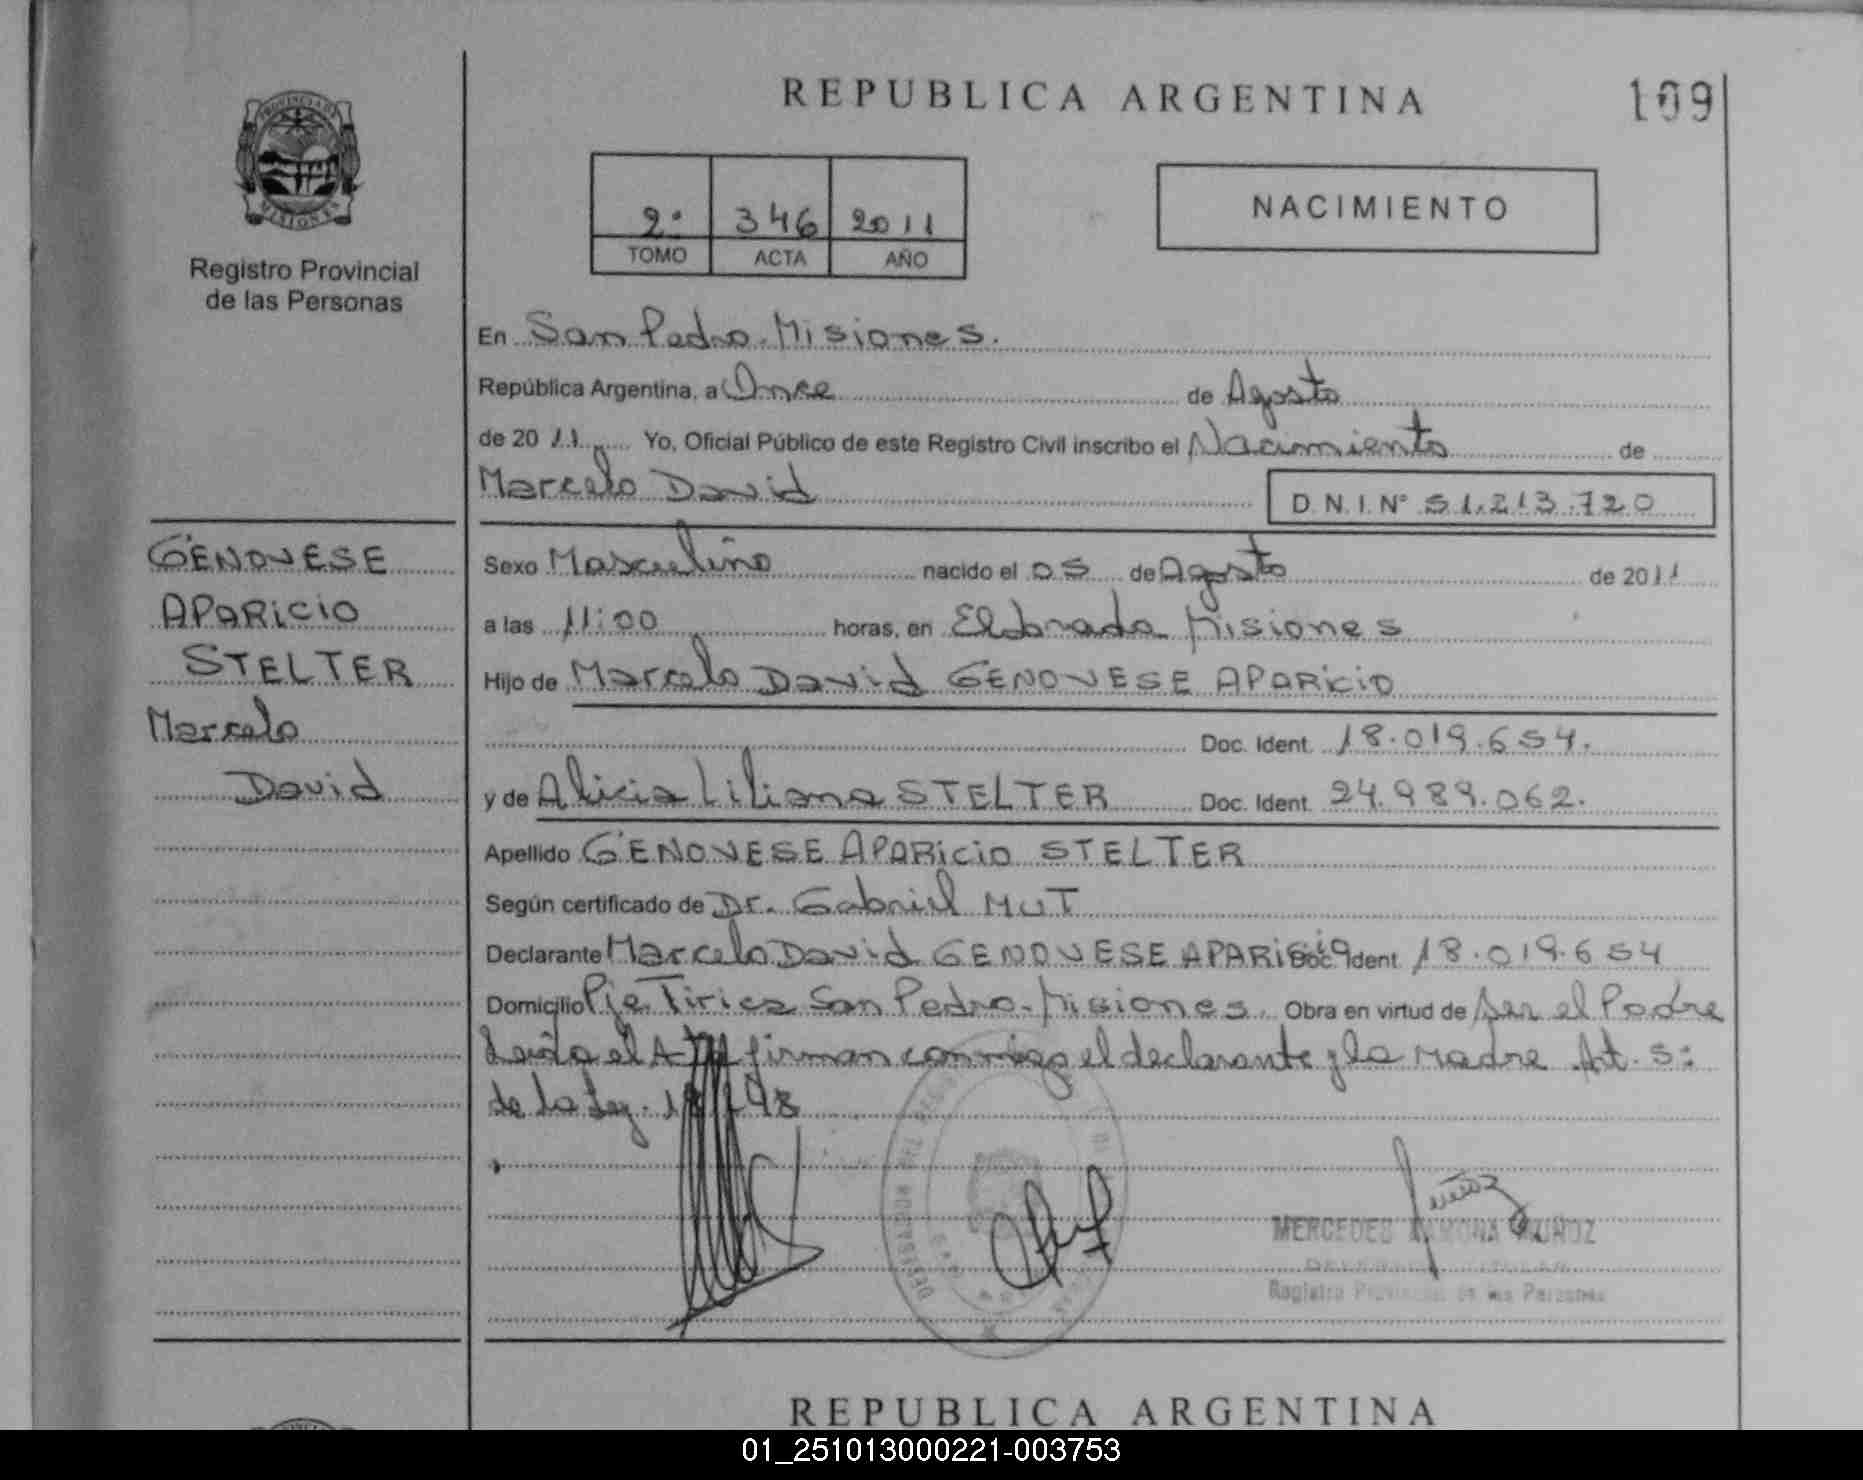 REPUBLICA ARGENTINA
109
PROVINCIA DE MISIONES
Registro Provincial
de las Personas
2º 346 2011
TOMO ACTA AÑO
NACIMIENTO
En San Pedro. Misiones.
República Argentina, a Once de Agosto
de 20 11 Yo, Oficial Público de este Registro Civil inscribo el Nacimiento de
Marcelo David
D. N. I. Nº 51.213.720
GENOVESE
APARICIO
STELTER
Marcelo
David
Sexo Masculino nacido el 05 de Agosto de 2011
a las 11:00 horas, en Eldorado Misiones
Hijo de Marcelo David GENOVESE APARICIO
Doc. Ident. 18.019.654.
y de Alicia Liliana STELTER Doc. Ident. 24.989.062.
Apellido GENOVESE APARICIO STELTER
Según certificado de Dr. Gabriel MUT
Declarante Marcelo David GENOVESE APARICIO Doc. Ident. 18.019.654
Domicilio Pje Tirica San Pedro-Misiones. Obra en virtud de ser el Padre
Leida el firman conmigo el declarante y la Madre Art. 5:
de la Ley.
Muñoz
MERCEDES RAMONA MUÑOZ
DELEGADA TITULAR
Registro Provincial de las Personas
REPUBLICA ARGENTINA
01_251013000221-003753